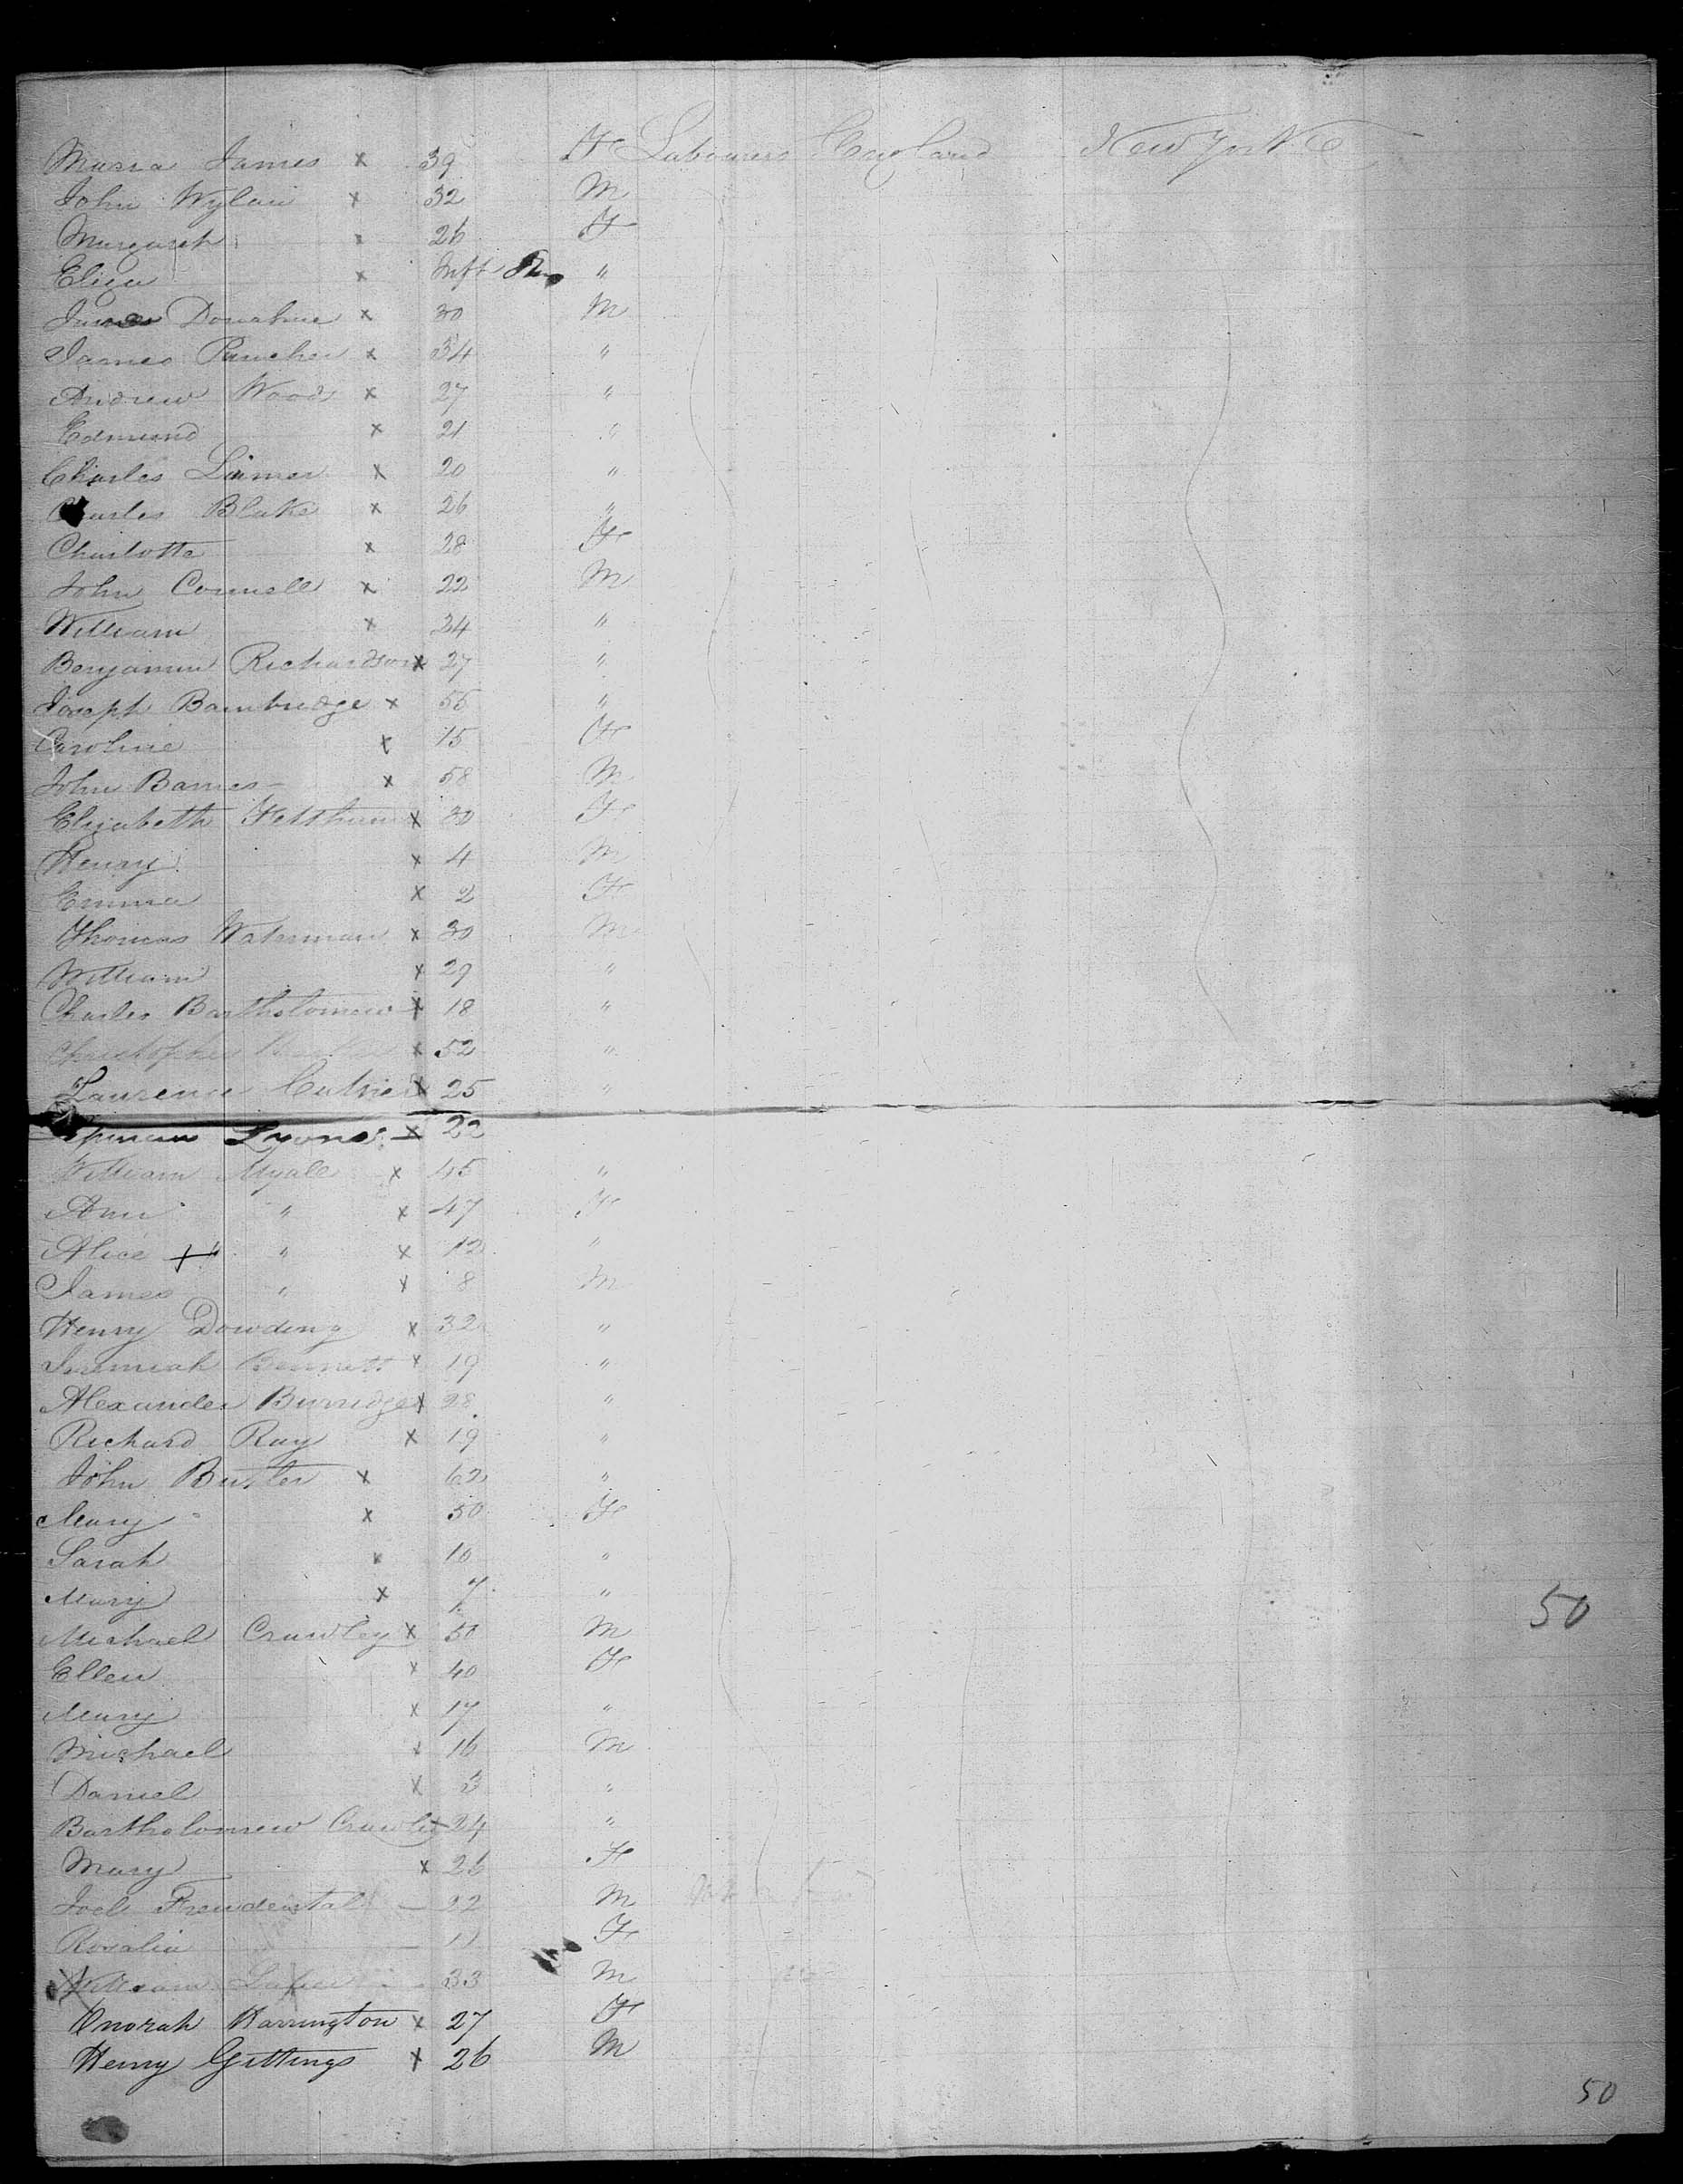 Maria James x 39 F Labourers England New York
John Wylan x 32 M
Margaret x 26 F
Eliza x Inft "
James Donahue x 30 M
James x 34 "
Andrew Woods x 27 "
Edmund x 21 "
Charles x 20 "
Charles Blake x 26 "
Charlotte x 28 F
John Connell x 22 M
William x 34 "
Benjamin Richardson x 27 "
Joseph Bambridge x 55 "
Caroline x 15 F
John Barnes x 58 M
Elizabeth x 30 F
Henry x 4 M
Emma x 2 F
Thomas Waterman x 30 M
William x 29 "
Charles Bartholomew x 18 "
Christopher x 52 "
Laurence x 25 "
Lyons x 22
William Myall x 45 "
Ann " x 47 F
Alice " x 12 "
James " x 8 M
Henry Dowding x 32 "
Jeremiah Bennett x 19 "
Alexander Burridge x 28 "
Richard Ray x 19 "
John Butler x 62 "
Mary x 50 F
Sarah x 10 "
Mary x 7 "
50
Michael Crawley x 50 M
Ellen x 40 F
Mary x 17 "
Michael x 16 M
Daniel x 3 "
Bartholomew Crawley x 24 "
Mary x 26 F
Joel Freudental — 22 M
Rosalia — 11 F
William 33 M
Onorah Harrington x 27 F
Henry Gittings x 26 M
50